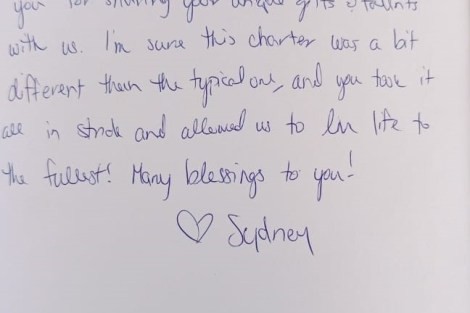 you for sharing your unique gifts & talents
with us. I'm sure this charter was a bit
different than the typical one, and you took it
all in stride and allowed us to live life to
the fullest! Many blessings to you!
♡ Sydney